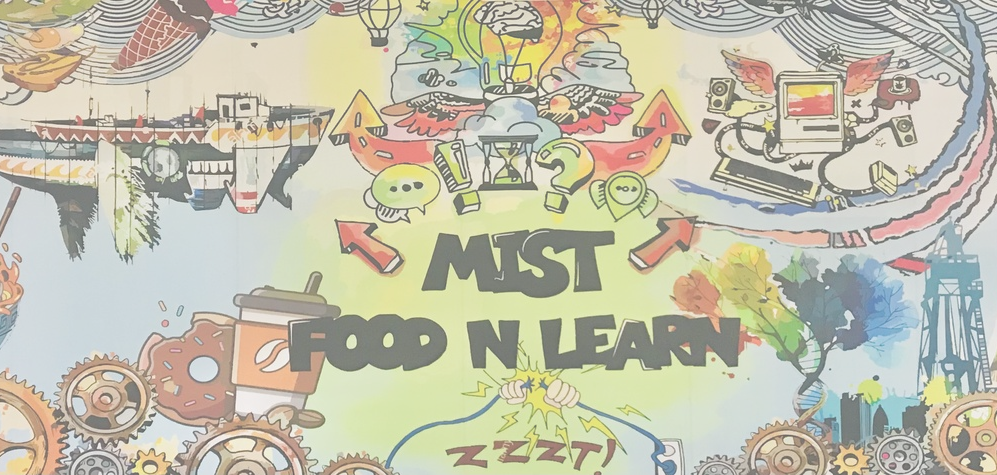 ! ?
MIST
FOOD N LEARN
ZZZT!